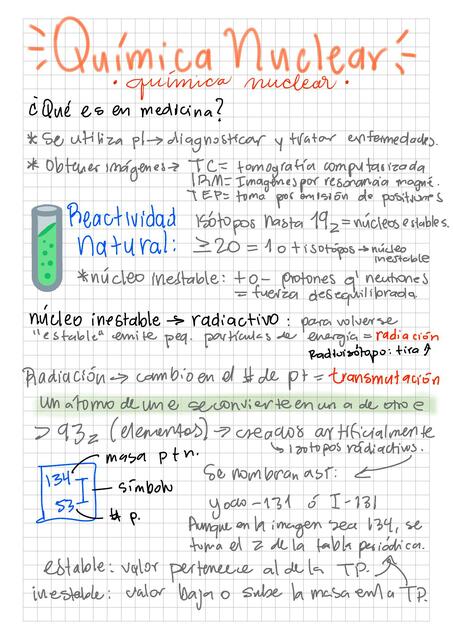 Química Nuclear
• química nuclear •
¿Qué es en medicina?
* Se utiliza p/→ diagnosticar y tratar enfermedades.
* Obtener imágenes → TC = tomografía computarizada
IRM = Imágenes por resonancia magné.
TEP = toma por emisión de positrones
Reactividad Natural:
Isótopos hasta 19z = núcleos estables.
≥ 20 = 1 o + isótopos → núcleo inestable
* núcleo inestable: + o - protones q' neutrones
= fuerza desequilibrada
núcleo inestable → radiactivo: para volverse
"estable" emite peq. partículas de energía = radiación
Radioisótopo: tira ↑
Radiación → cambio en el # de pt = transmutación
Un átomo de un e se convierte en un a de otro e
> 93z (elementos) → creados artificialmente
↳ isótopos radiactivos.
masa p+n.
134
I
53
símbolo
# p.
Se nombran así:
yodo-131 ó I-131
Aunque en la imagen sea 134, se
toma el z de la tabla periódica.
estable: valor pertenece al de la TP.
inestable: valor baja o sube la masa en la TP.